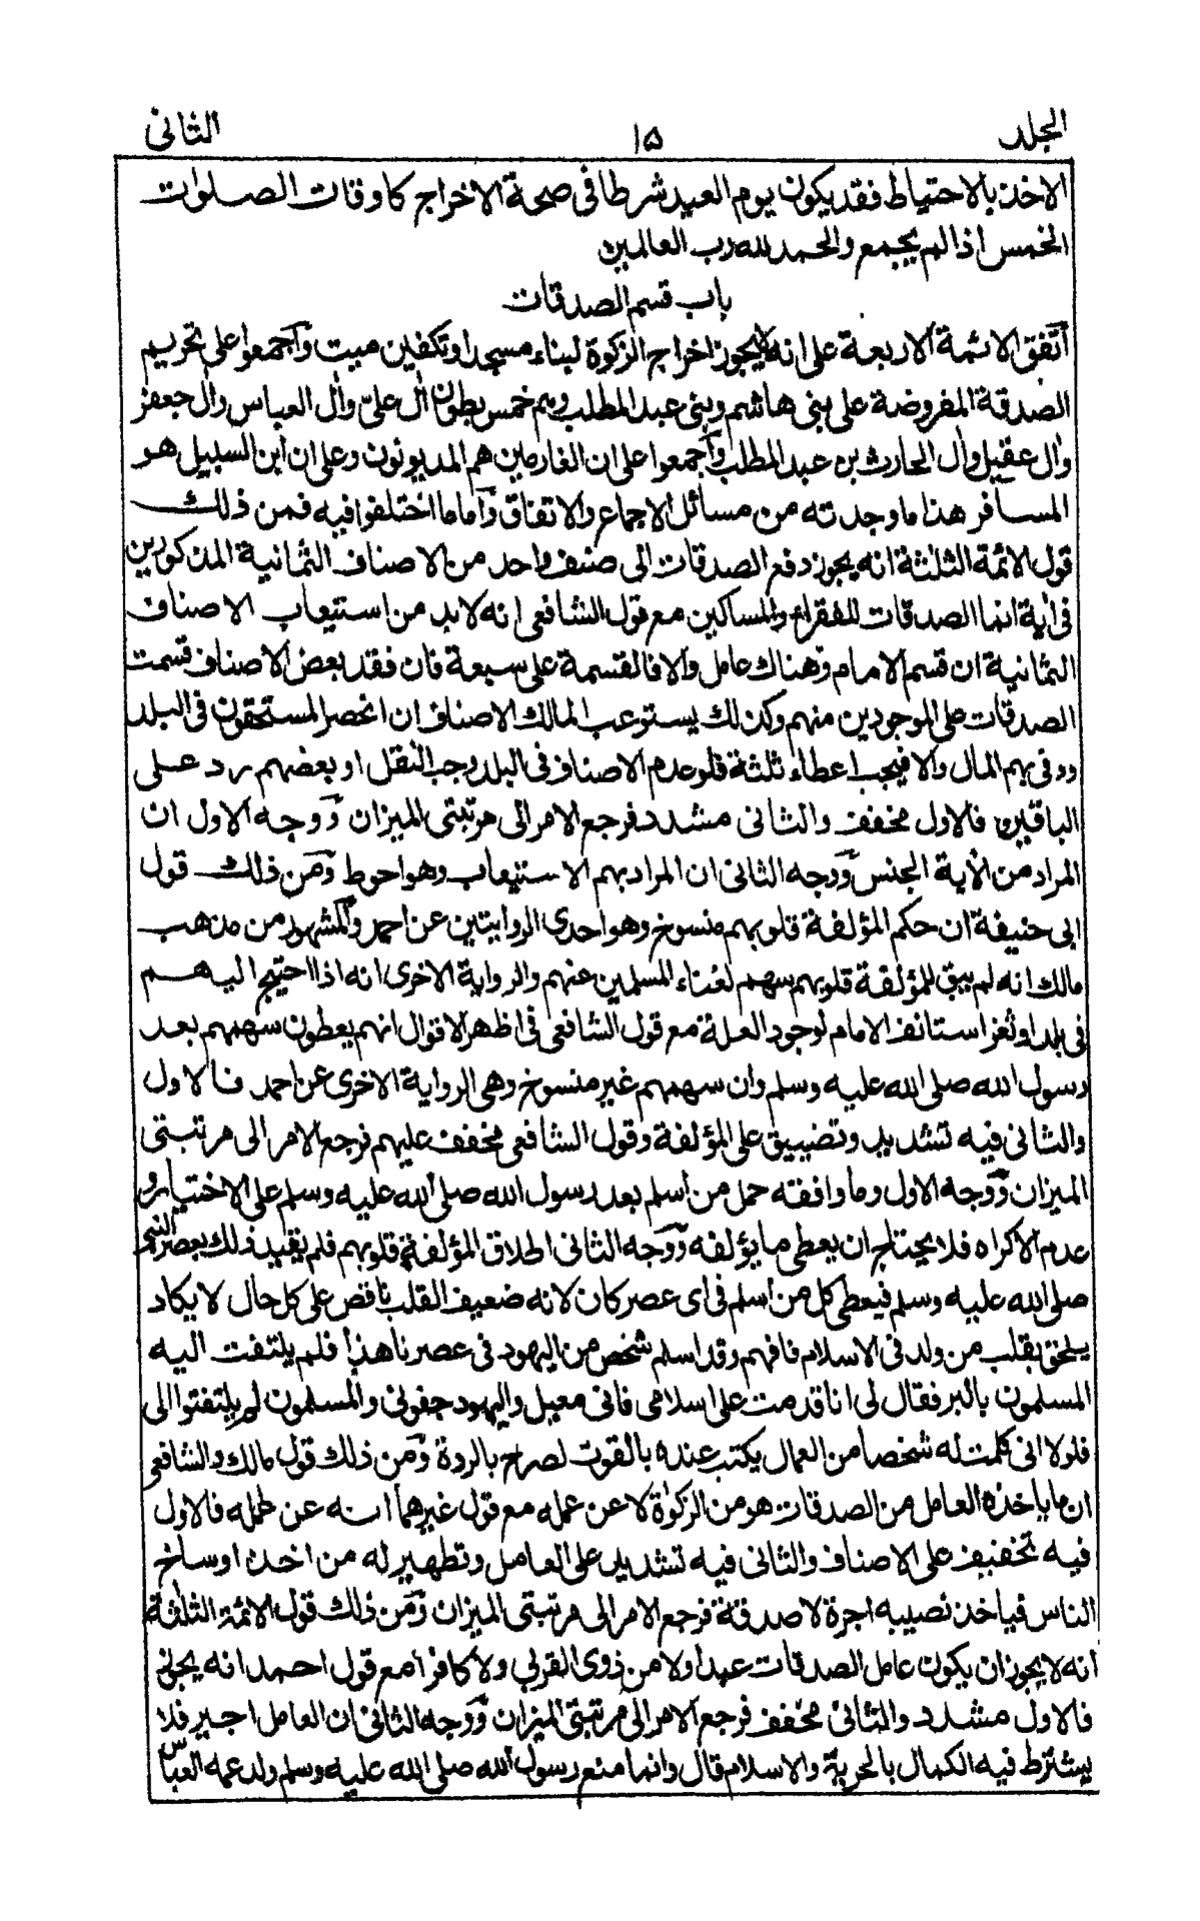 الجلد ١٥ الثانى
الاخذ بالاحتياط فقد يكون يوم العيد شرطا فى صحة الاخراج كاوقات الصلوات
الخمس اذا لم يجمع والحمد لله رب العالمين
باب قسم الصدقات
اتفق الائمة الاربعة على انه لايجوز اخراج الزكوة لبناء مسجد او تكفين ميت واجمعوا على تحريم
الصدقة المفروضة على بنى هاشم وبنى عبد المطلب وهم خمس بطون ال على وال العباس وال جعفر
وال عقيل وال الحارث بن عبد المطلب واجمعوا على ان الغارمين هم المديونون وعلى ان ابن السبيل هو
المسافر هذا ما وجدته من مسائل الاجماع والاتفاق واما ما اختلفوا فيه فمن ذلك
قول الائمة الثلثة انه يجوز دفع الصدقات الى صنف واحد من الاصناف الثمانية المذكورين
فى اية انما الصدقات للفقراء والمساكين مع قول الشافعى انه لابد من استيعاب الاصناف
الثمانية ان قسم الامام وهناك عامل والا فالقسمة على سبعة فان فقد بعض الاصناف قسمت
الصدقات على الموجودين منهم وكذلك يستوعب المالك الاصناف ان انحصر المستحقون فى البلد
ووفى بهم المال والا فيجب اعطاء ثلثة فلو عدم الاصناف فى البلد وجب النقل او بعضهم رد على
الباقين فالاول مخفف والثانى مشدد فرجع الامر الى مرتبتى الميزان ووجه الاول ان
المراد من الأية الجنس ووجه الثانى ان المراد بهم الاستيعاب وهو احوط ومن ذلك قول
ابى حنيفة ان حكم المؤلفة قلوبهم منسوخ وهو احدى الروايتين عن احمد والمشهور من مذهب
مالك انه لم يبق للمؤلفة قلوبهم سهم لغناء المسلمين عنهم والرواية الاخرى انه اذا احتيج اليهم
فى بلد او ثغر استانف الامام لوجود العلة مع قول الشافعى فى اظهر الاقوال انهم يعطون سهمهم بعد
رسول الله صلى الله عليه وسلم وان سهمهم غير منسوخ وهى الرواية الاخرى عن احمد فالاول
والثانى فيه تشديد وتضييق على المؤلفة وقول الشافعى مخفف عليهم فرجع الامر الى مرتبتى
الميزان ووجه الاول وما وافقه حمل من اسلم بعد رسول الله صلى الله عليه وسلم على الاختيار و
عدم الاكراه فلا يحتاج ان يعطى ما يؤلفه ووجه الثانى اطلاق المؤلفة قلوبهم فلم يقيد ذلك بعصر النبى
صلى الله عليه وسلم فيعطى كل من اسلم فى اى عصر كان لانه ضعيف القلب ناقص على كل حال لا يكاد
يلحق بقلب من ولد فى الاسلام فافهم وقد اسلم شخص من اليهود فى عصرنا هذا فلم يلتفت اليه
المسلمون بالبر فقال لى انا قد ندمت على اسلامى فانى معيل واليهود جفونى والمسلمون لم يلتفتوا الى
فلولا انى كلمت له شخصا من العمال يكتب عنده بالقوت لصرح بالردة ومن ذلك قول مالك والشافعى
ان ما ياخذه العامل من الصدقات هو من الزكوة لا عن عمله مع قول غيرهما انه عن عمله فالاول
فيه تخفيف على الاصناف والثانى فيه تشديد على العامل وتطهير له من اخذ اوساخ
الناس فياخذ نصيبه اجرة لا صدقة فرجع الامر الى مرتبتى الميزان ومن ذلك قول الائمة الثلثة
انه لايجوز ان يكون عامل الصدقات عبدا ولا من ذوى القربى ولا كافرا مع قول احمد انه يجزئ
فالاول مشدد والثانى مخفف فرجع الامر الى مرتبتى الميزان ووجه الثانى ان العامل اجير فلا
يشترط فيه الكمال بالحرية والاسلام قال وانما منع رسول الله صلى الله عليه وسلم ولد عمه العباس